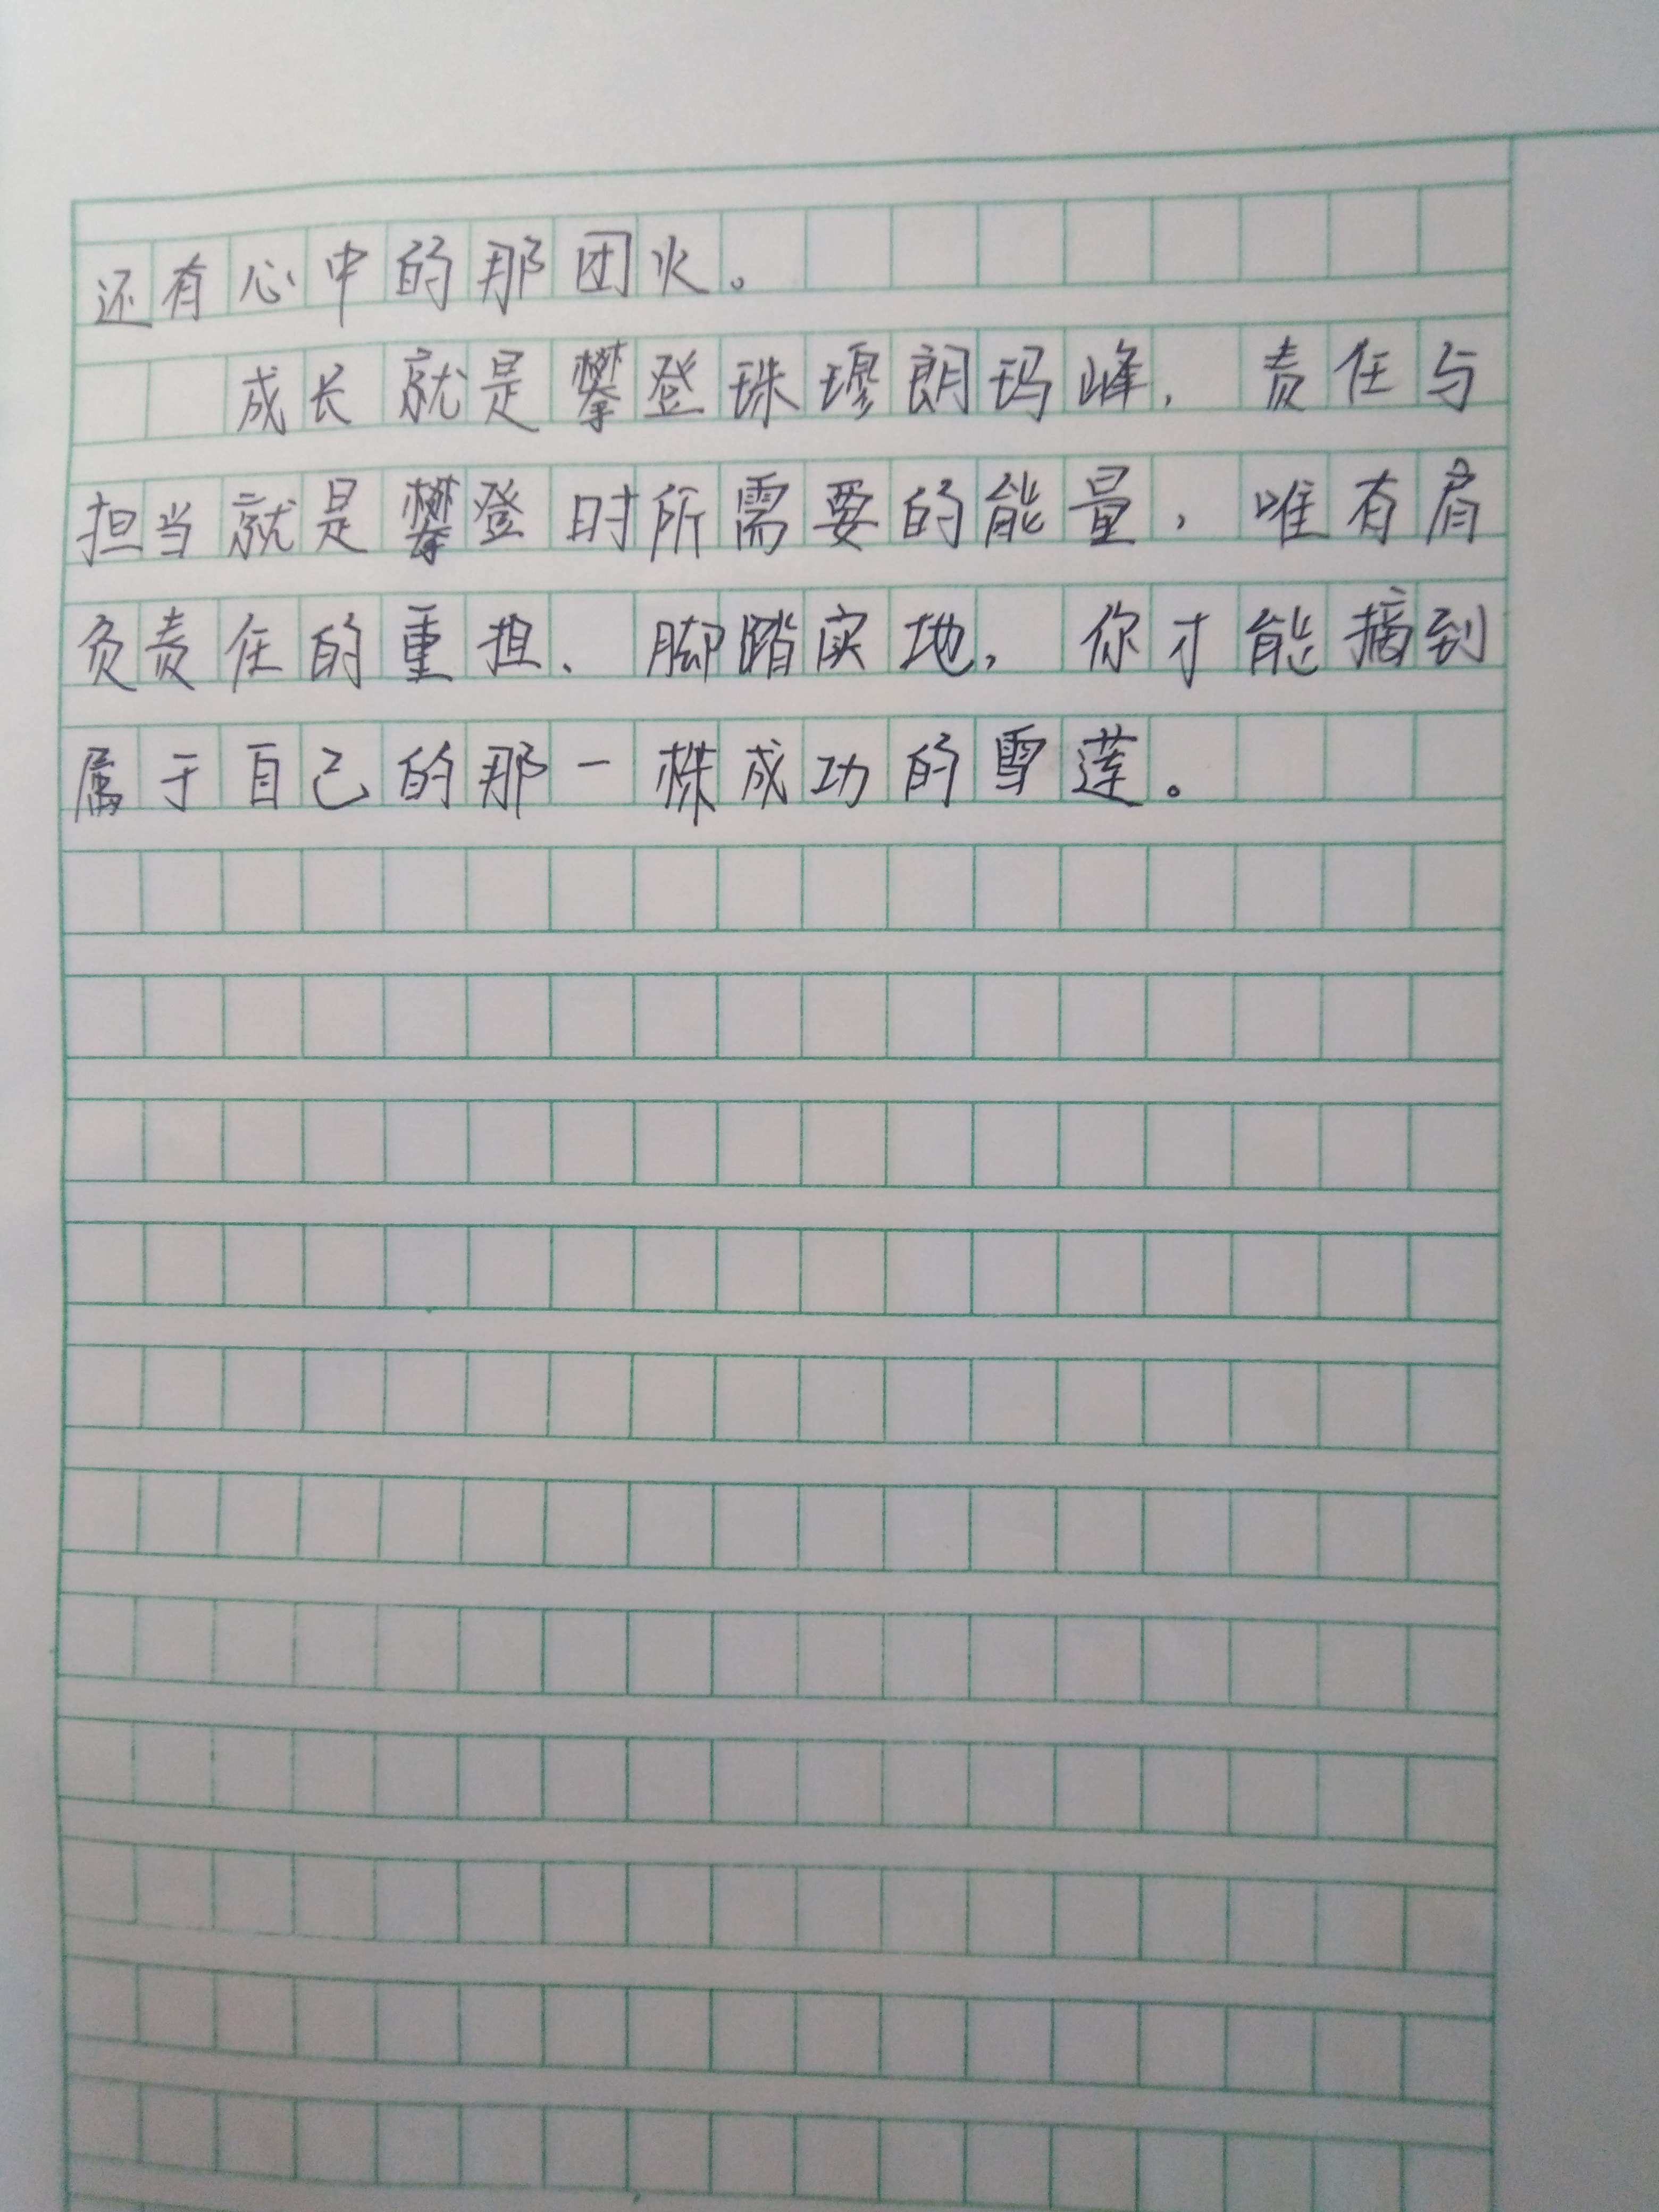 还有心中的那团火。
成长就是攀登珠穆朗玛峰，责任与
担当就是攀登时所需要的能量，唯有肩
负责任的重担、脚踏实地，你才能摘到
属于自己的那一株成功的雪莲。